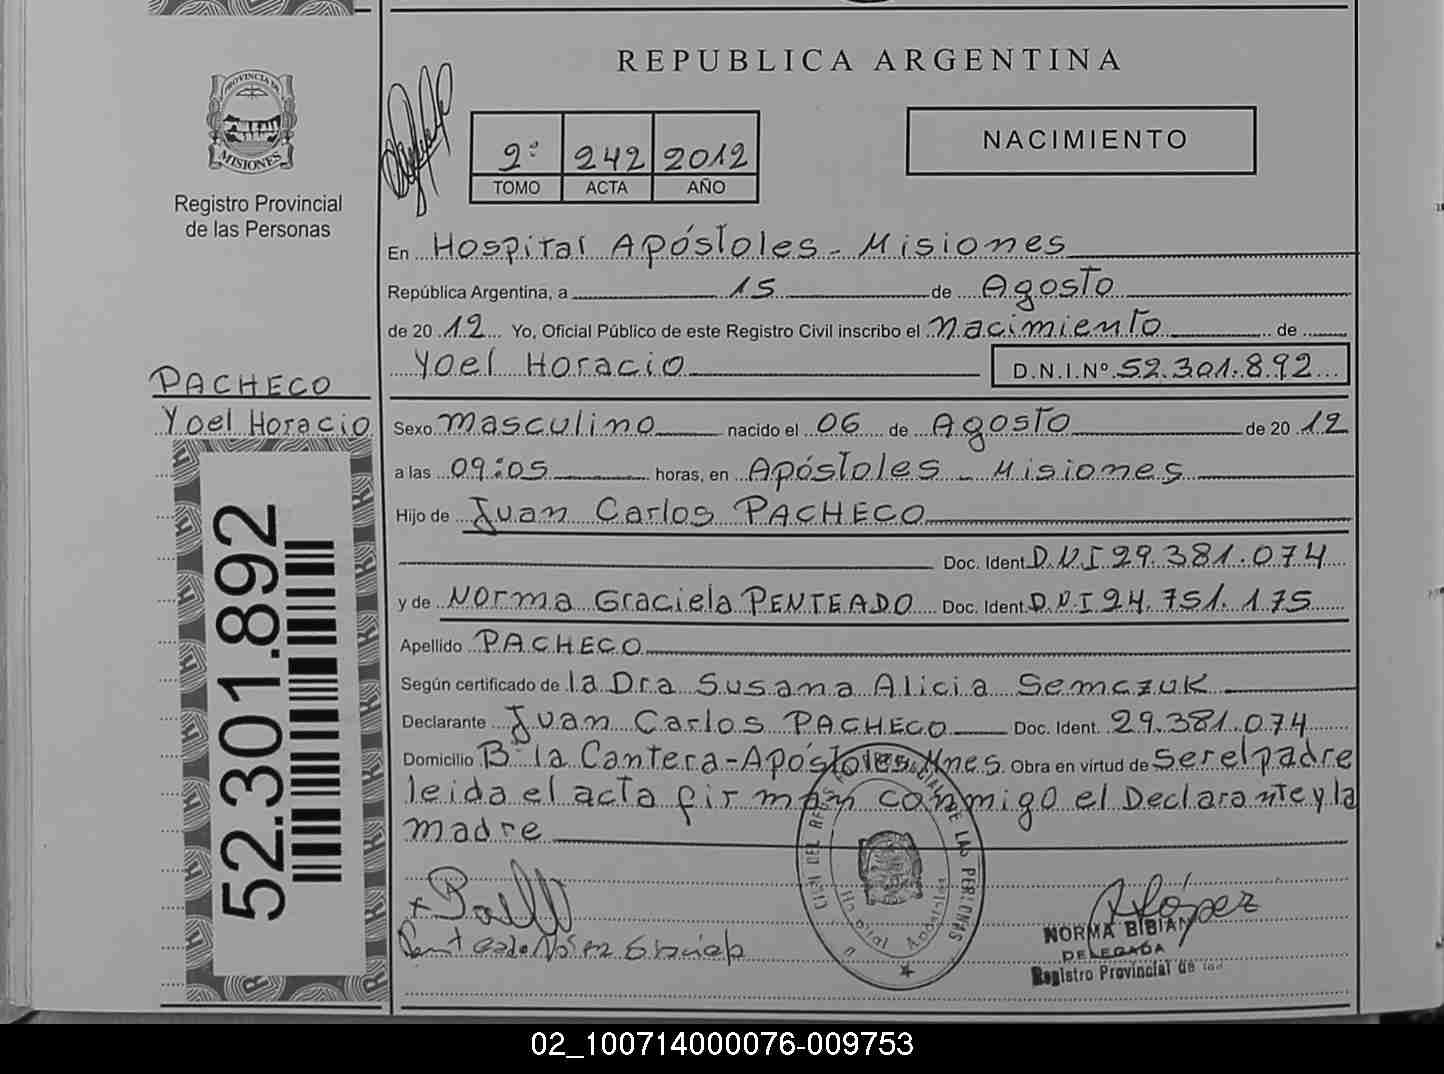 REPUBLICA ARGENTINA
PROVINCIA DE
MISIONES
Registro Provincial
de las Personas
2º 242 2012
TOMO ACTA AÑO
NACIMIENTO
En Hospital Apóstoles - Misiones
República Argentina, a 15 de Agosto
de 2012 Yo, Oficial Público de este Registro Civil inscribo el nacimiento de
Yoel Horacio D.N.I.Nº 52.301.892
PACHECO
Yoel Horacio
52.301.892
Sexo masculino nacido el 06 de Agosto de 2012
a las 09:05 horas, en Apóstoles - Misiones
Hijo de Juan Carlos PACHECO
Doc. Ident. D.N.I 29.381.074
y de Norma Graciela PENTEADO Doc. Ident. D.N.I 24.751.175
Apellido PACHECO
Según certificado de la Dra Susana Alicia Semczuk
Declarante Juan Carlos PACHECO Doc. Ident. 29.381.074
Domicilio Bº la Cantera - Apóstoles Mnes. Obra en virtud de ser el padre
leida el acta firman conmigo el Declarante y la
madre
DE LAS PERSONAS
Hospital Apóstoles
López
NORMA BIBIAN
DELEGADA
Registro Provincial de las
02_100714000076-009753